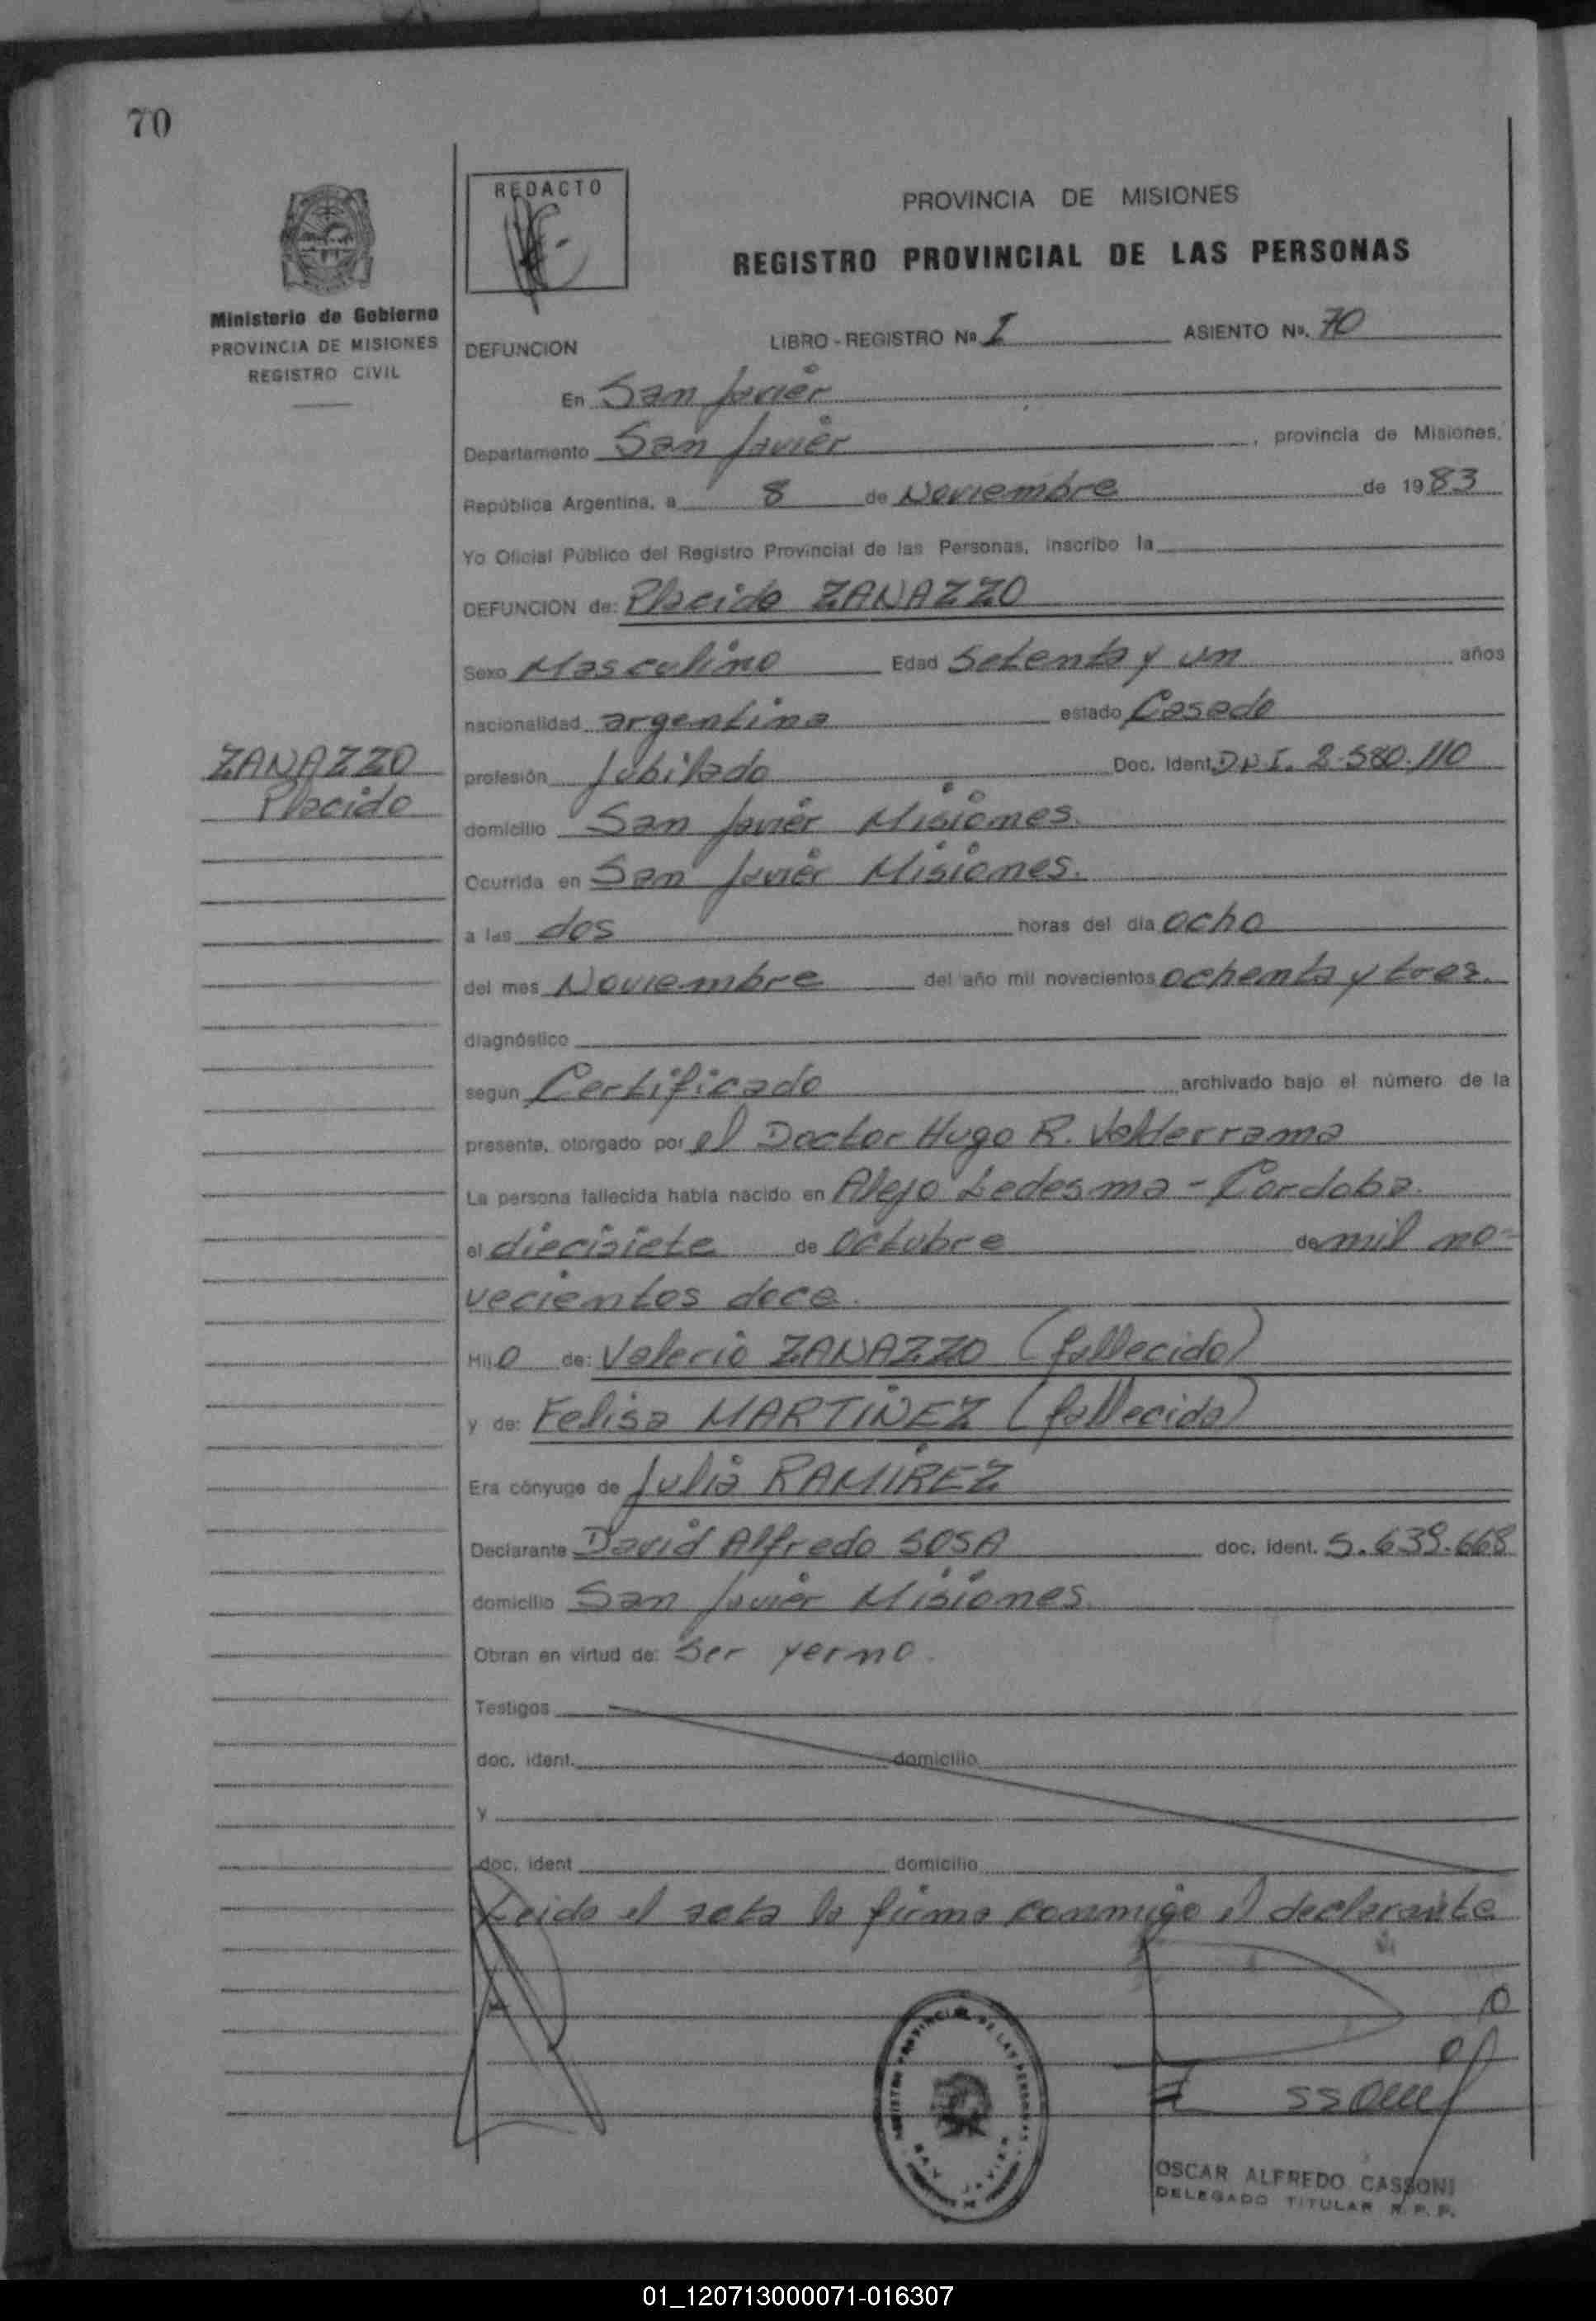 70
REDACTO
PROVINCIA DE MISIONES
REGISTRO PROVINCIAL DE LAS PERSONAS
Ministerio de Gobierno
PROVINCIA DE MISIONES
REGISTRO CIVIL
DEFUNCION LIBRO - REGISTRO Nº I ASIENTO Nº. 70
En San Javier
Departamento San Javier, provincia de Misiones,
República Argentina, a 8 de Noviembre de 1983
Yo Oficial Público del Registro Provincial de las Personas, inscribo la
DEFUNCION de: Placido ZANAZZO
Sexo Masculino Edad Setenta y un años
nacionalidad argentina estado Casado
ZANAZZO
Placido
profesión Jubilado Doc. Ident. D.N.I. 2.580.110
domicilio San Javier Misiones.
Ocurrida en San Javier Misiones.
a las dos horas del día ocho
del mes Noviembre del año mil novecientos ochenta y tres.
diagnóstico
según Certificado archivado bajo el número de la
presente, otorgado por el Doctor Hugo R. Valderrama
La persona fallecida había nacido en Alejo Ledesma - Cordoba.
el diecisiete de Octubre de mil no-
vecientos doce.
Hijo de: Valerio ZANAZZO (fallecido)
y de: Felisa MARTINEZ (fallecida)
Era cónyuge de Julia RAMIREZ
Declarante David Alfredo SOSA doc. ident. 5.639.668
domicilio San Javier Misiones.
Obran en virtud de: Ser yerno.
Testigos
doc. ident. domicilio
y
doc. ident domicilio
Leida el acta la firma conmigo el declarante
REGISTRO PROVINCIAL DE LAS PERSONAS
SAN JAVIER
OSCAR ALFREDO CASSONI
DELEGADO TITULAR R. P. P.
01_120713000071-016307